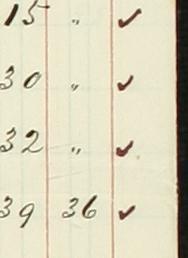 15 " ✓
30 " ✓
32 " ✓
39 36 ✓